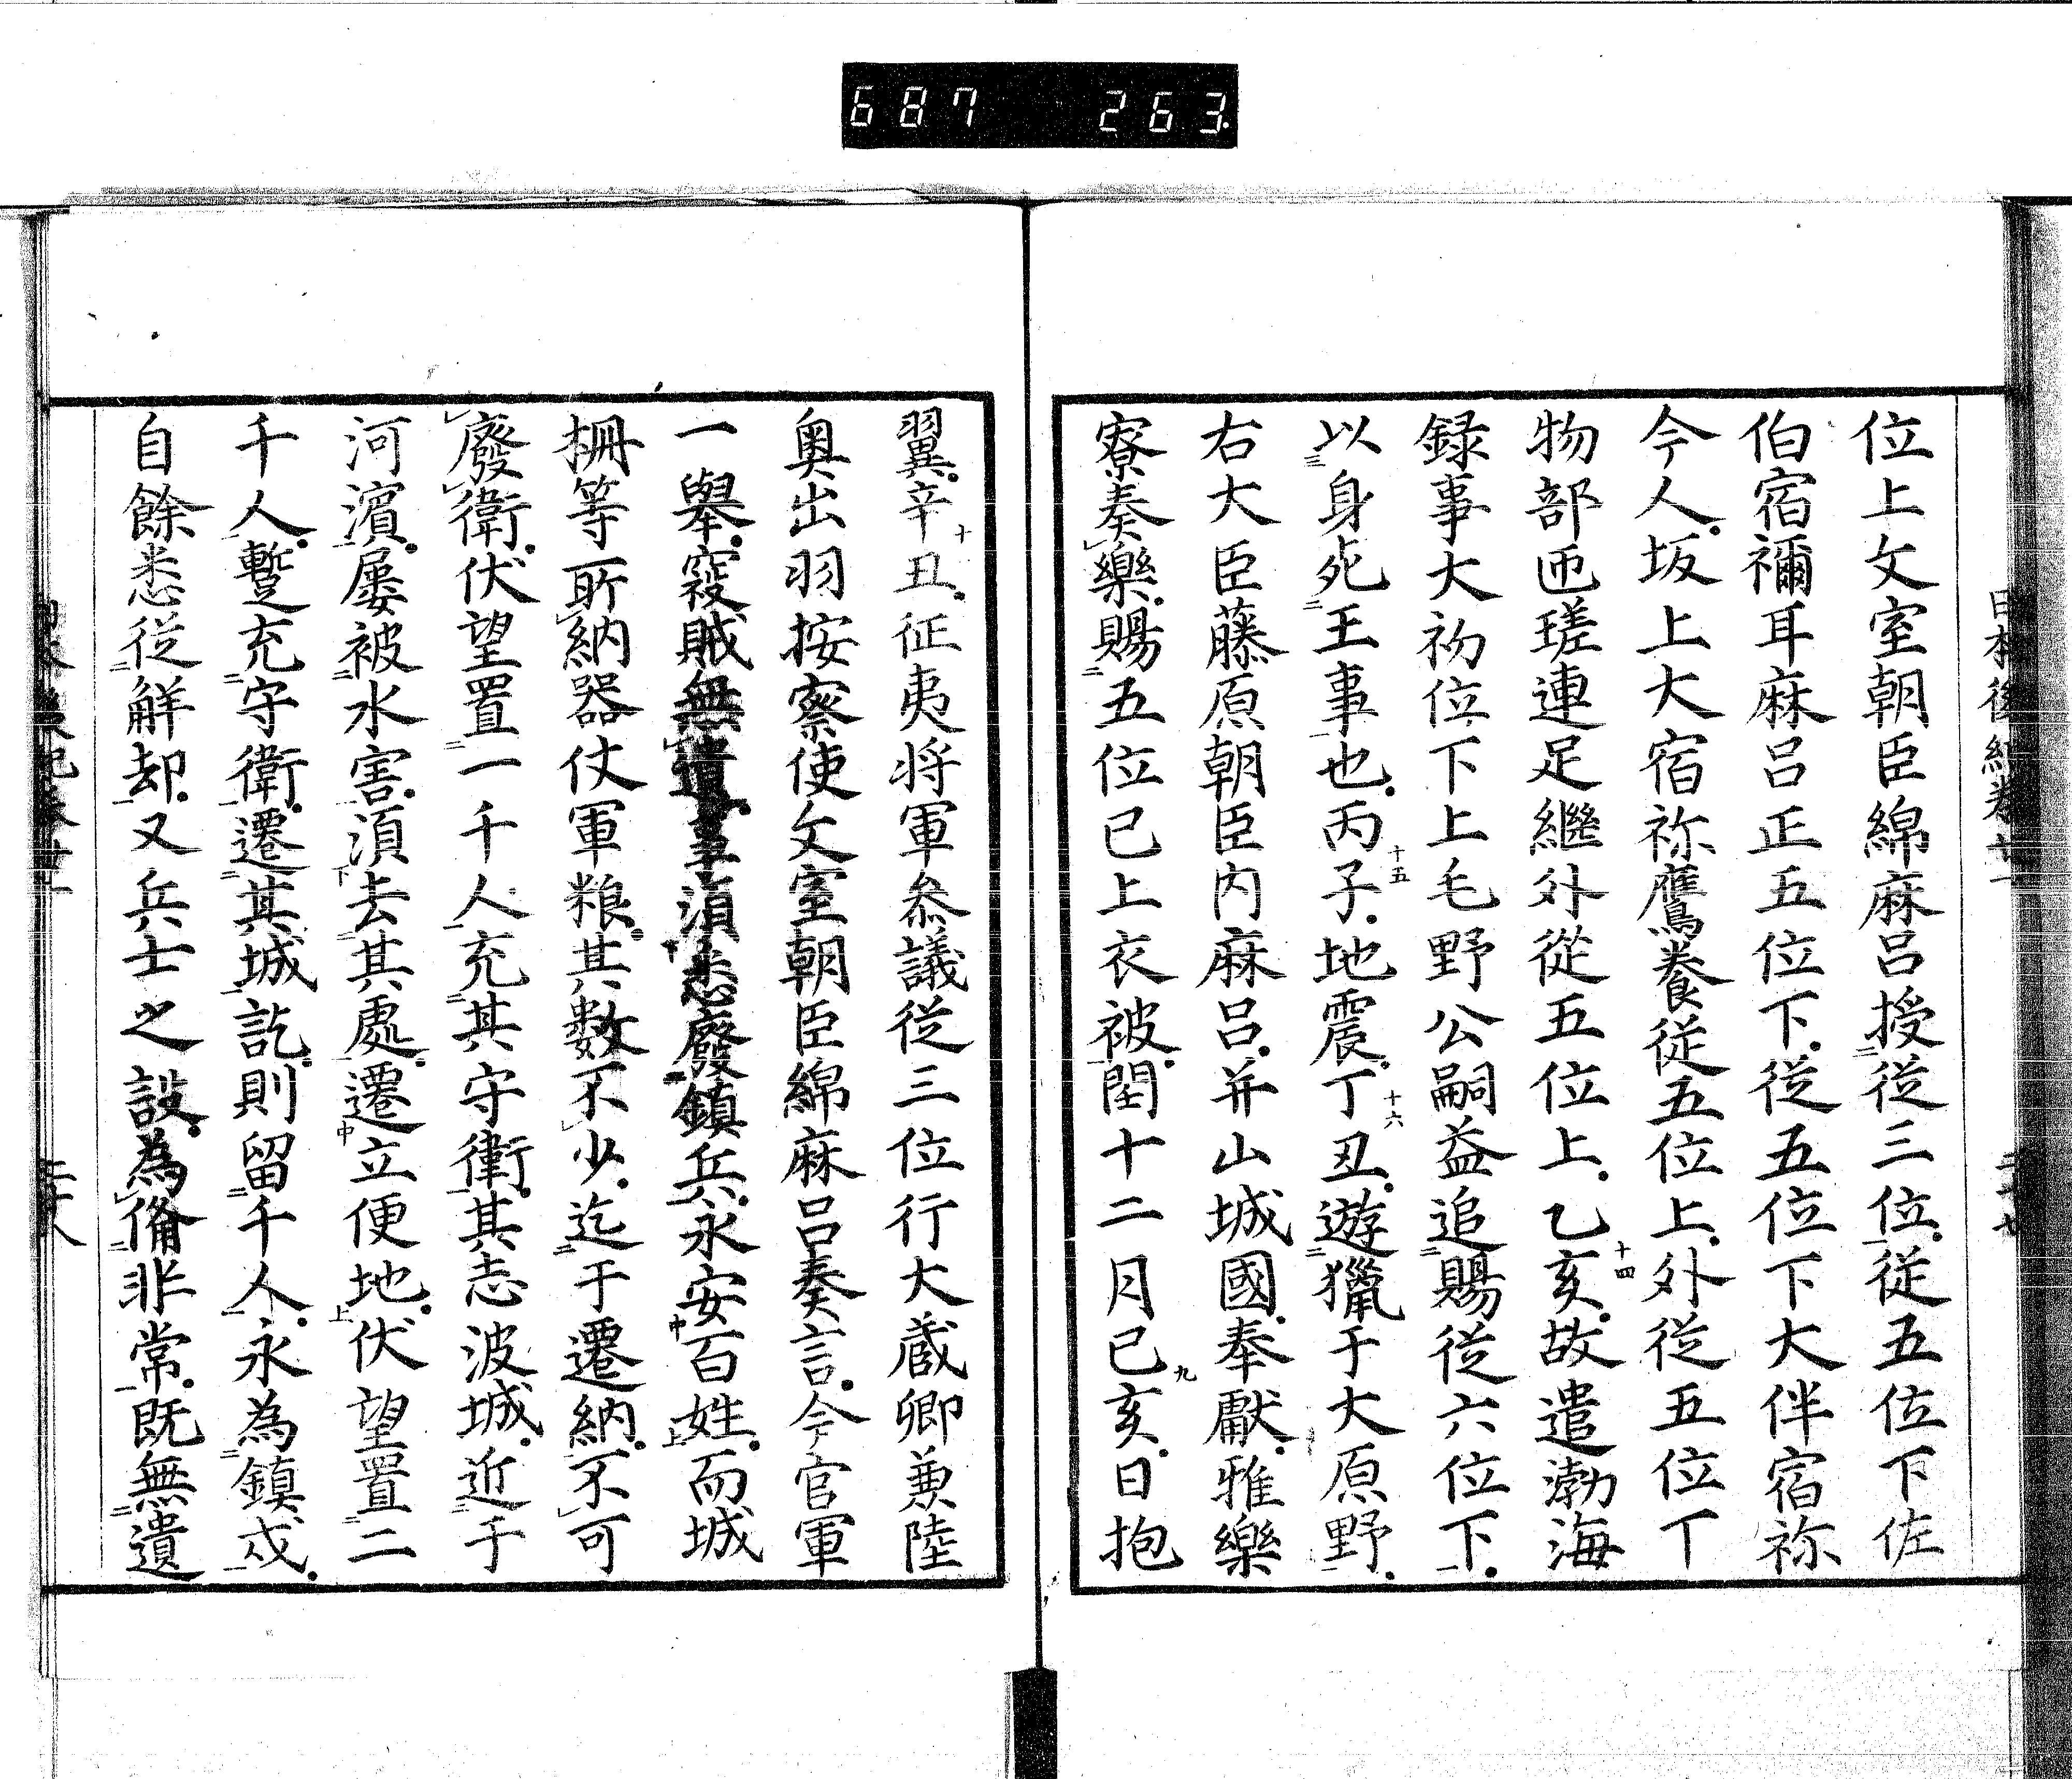 687 263
日本後紀卷廿一 二十七
位上文室朝臣綿麻呂授従三位従五位下佐
伯宿禰耳麻呂正五位下従五位下大伴宿祢
今人坂上大宿祢鷹養従五位上外従五位下
物部匝瑳連足繼外從五位上乙亥故遣渤海
録事大初位下上毛野公嗣益追賜従六位下
以身死王事也丙子地震丁丑遊獵于大原野
右大臣藤原朝臣内麻呂并山城國奉獻雅樂
寮奏樂賜五位已上衣被閏十二月己亥日抱
翼辛丑征夷将軍叅議従三位行大蔵卿兼陸
奥出羽按察使文室朝臣綿麻呂奏言今官軍
一舉寇賊無遺事湏悉廢鎮兵永安百姓而城
柵等所納器仗軍粮其數不少迄于遷納不可
廢衛伏望置一千人充其守衛其志波城近于
河濱屢被水害湏去其處遷立便地伏望置二
千人蹔充守衛遷其城訖則留千人永為鎮戍
自餘悉従解却又兵士之設為俻非常既無遺